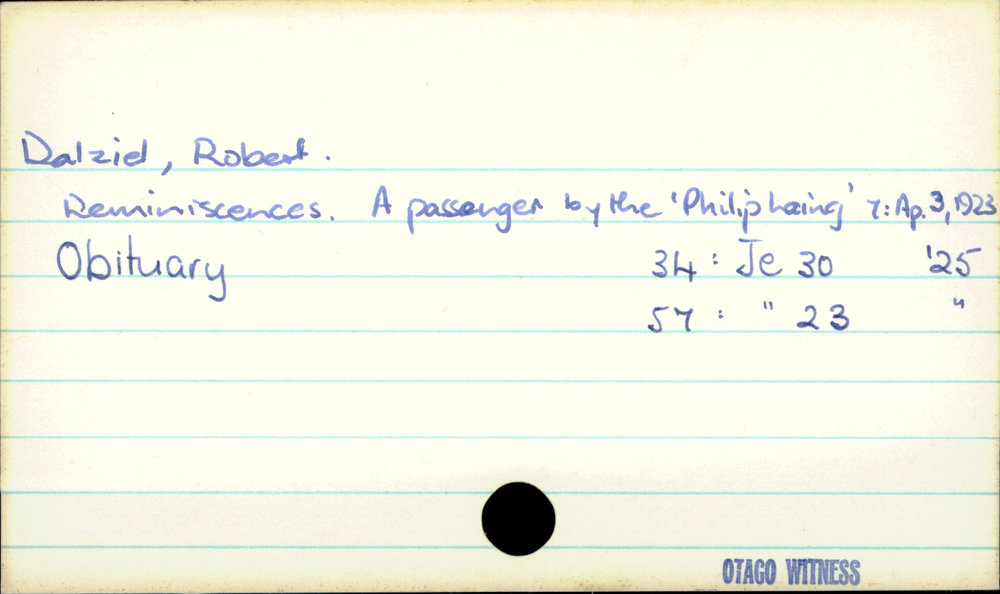 Dalziel, Robert.
Reminiscences. A passenger by the 'Philip Laing' 7: Ap. 3, 1923
Obituary 34 : Je 30 '25
57 : " 23 "
OTAGO WITNESS